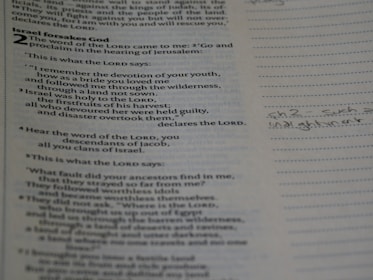 land, against the kings of Judah, its of-
ficials, its priests and the people of the land.
They will fight against you but will not over-
come you, for I am with you and will rescue you,'
declares the LORD.
Israel forsakes God
2 The word of the LORD came to me: 2 'Go and
proclaim in the hearing of Jerusalem:
'This is what the LORD says:
'"I remember the devotion of your youth,
how as a bride you loved me
and followed me through the wilderness,
through a land not sown.
3 Israel was holy to the LORD,
the firstfruits of his harvest;
all who devoured her were held guilty,
and disaster overtook them,"'
declares the LORD.
4 Hear the word of the LORD, you
descendants of Jacob,
all you clans of Israel.
5 This is what the LORD says:
'What fault did your ancestors find in me,
that they strayed so far from me?
They followed worthless idols
and became worthless themselves.
6 They did not ask, "Where is the LORD,
who brought us up out of Egypt
and led us through the barren wilderness,
through a land of deserts and ravines,
a land of drought and utter darkness,
a land where no one travels and no one
lives?"
7 I brought you into a fertile land
to eat its fruit and rich produce.
But you came and defiled my land